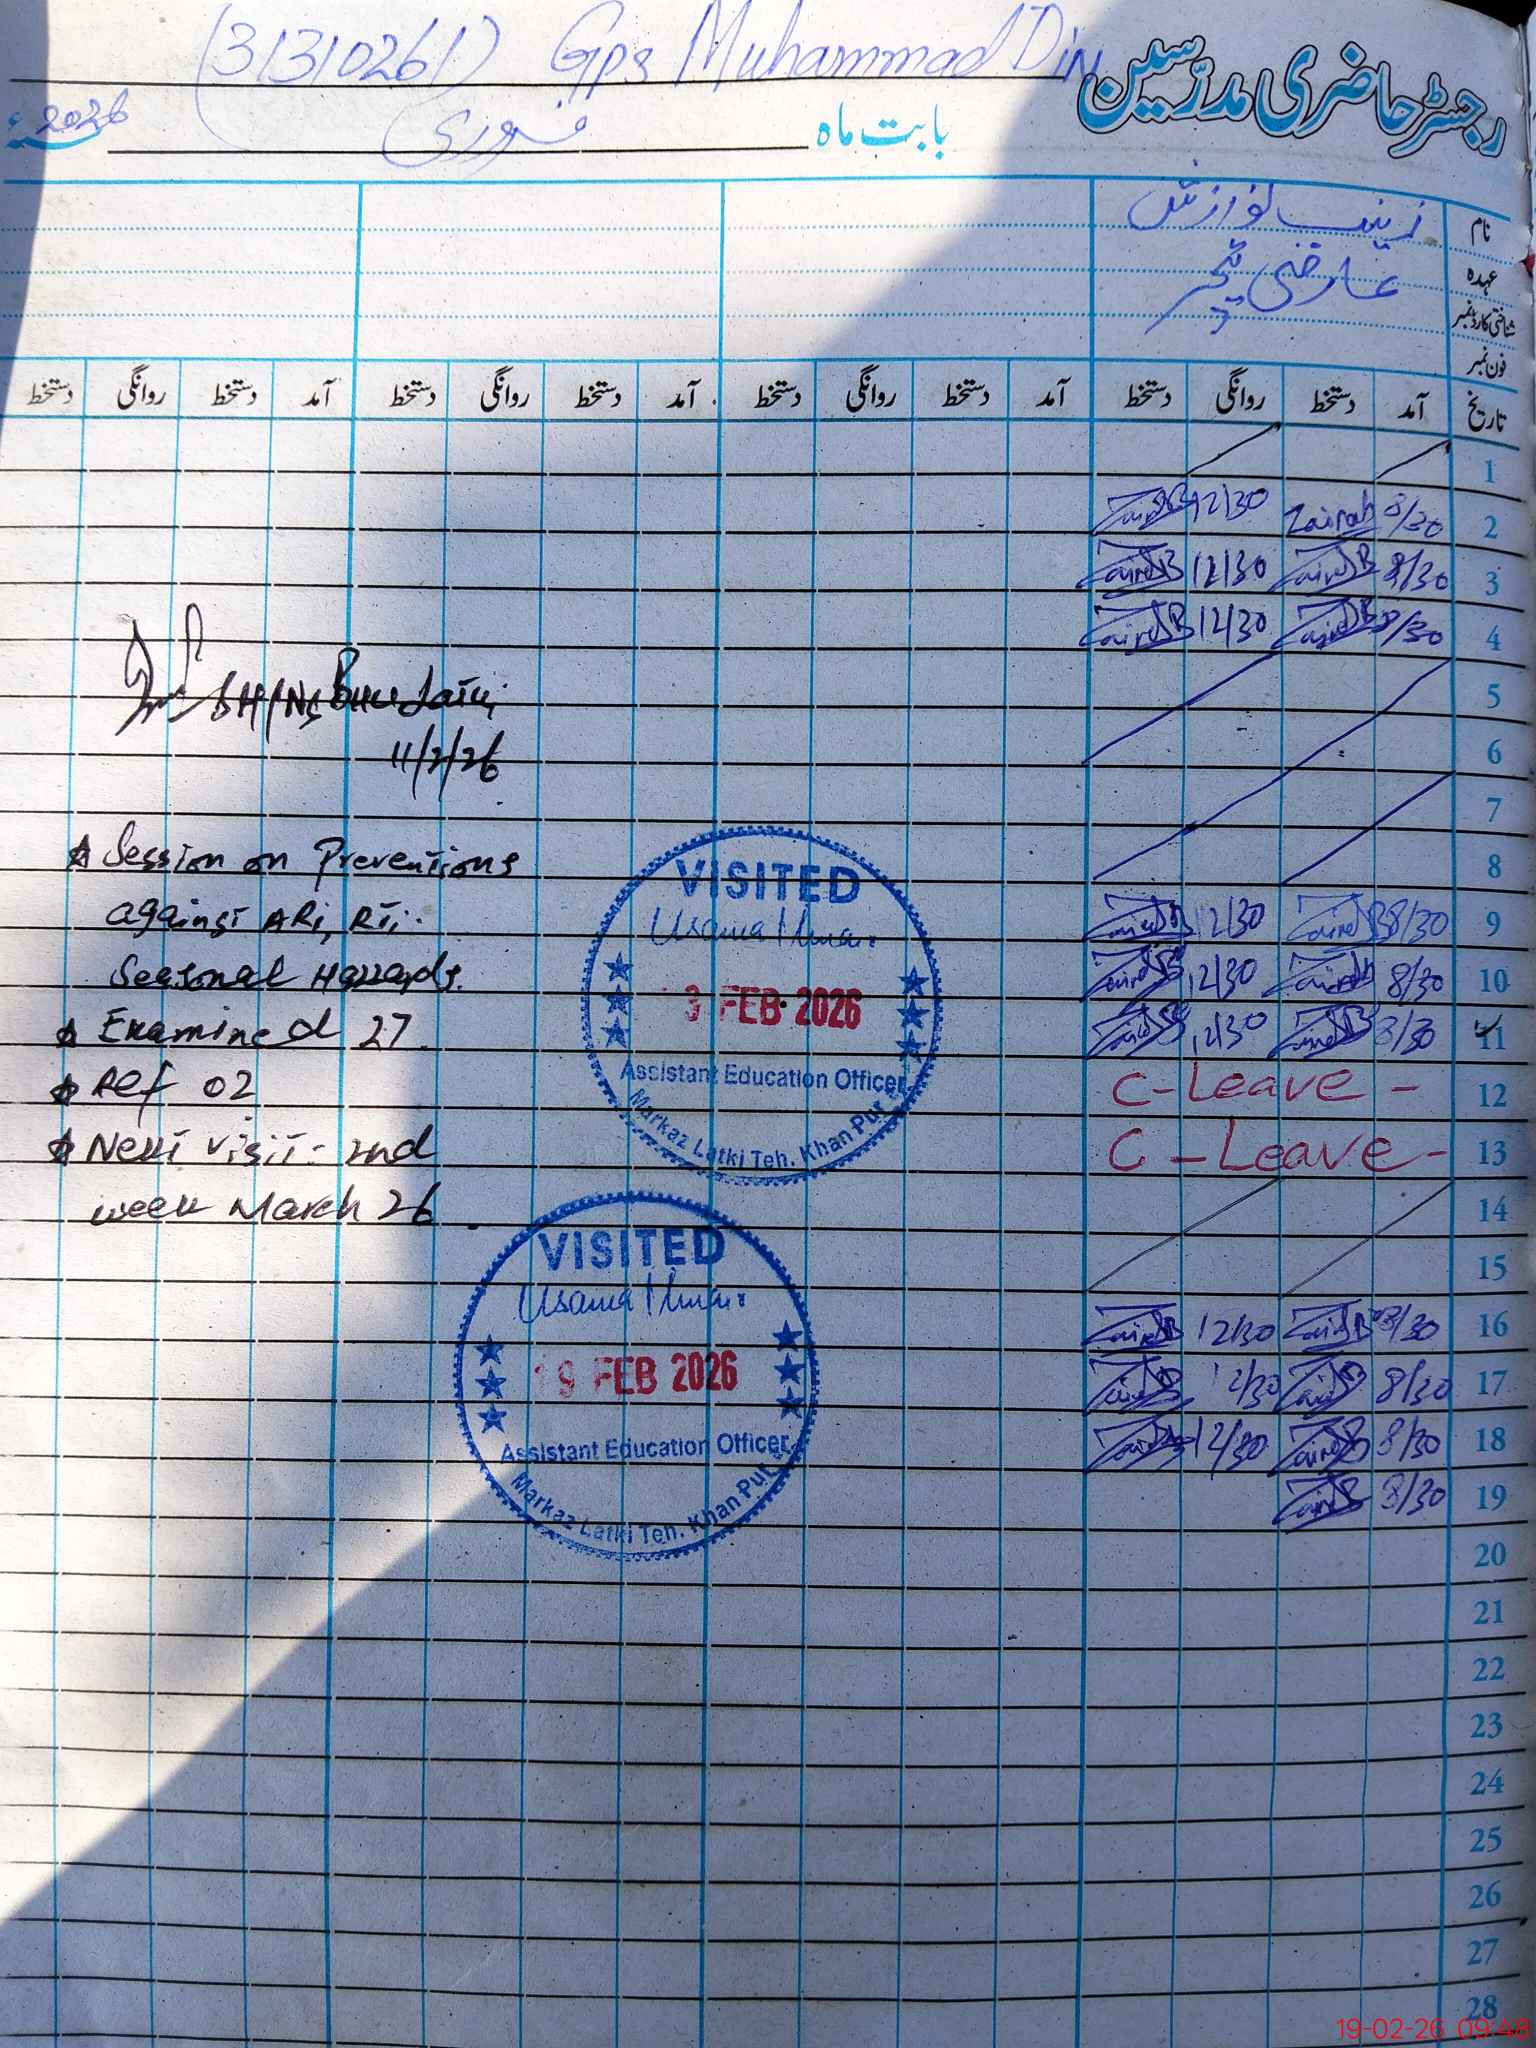 (31310261) Gps Muhammad Din
رجسٹر حاضری مدرسین
بابت ماہ فروری 2026ء
نام زینب نوازش
عہدہ عارضی ٹیچر
شناختی کارڈ نمبر
فون نمبر
تاریخ آمد دستخط روانگی دستخط آمد دستخط روانگی دستخط آمد دستخط روانگی دستخط آمد دستخط روانگی دستخط
1
2 8/30 Zainab 12/30
3 8/30 12/30
4 8/30 12/30
5
6
7
8
9 8/30 12/30
10 8/30 12/30
11 8/30 12/30
12 C-Leave -
13 C-Leave -
14
15
16 8/30 12/30
17 8/30 12/30
18 8/30 12/30
19 8/30
20
21
22
23
24
25
26
27
28
SH/NS
11/2/26
Session on Preventions
against ARi, RTi
Seasonal Hazzards.
Examined 27
Ref 02
Next visit:- 2nd
week March 26
VISITED
Usama Umair
3 FEB 2026
Assistant Education Officer
Markaz Latki Teh. Khan Pur
VISITED
Usama Umair
19 FEB 2026
Assistant Education Officer
Markaz Latki Teh. Khan Pur
19-02-26 09:48